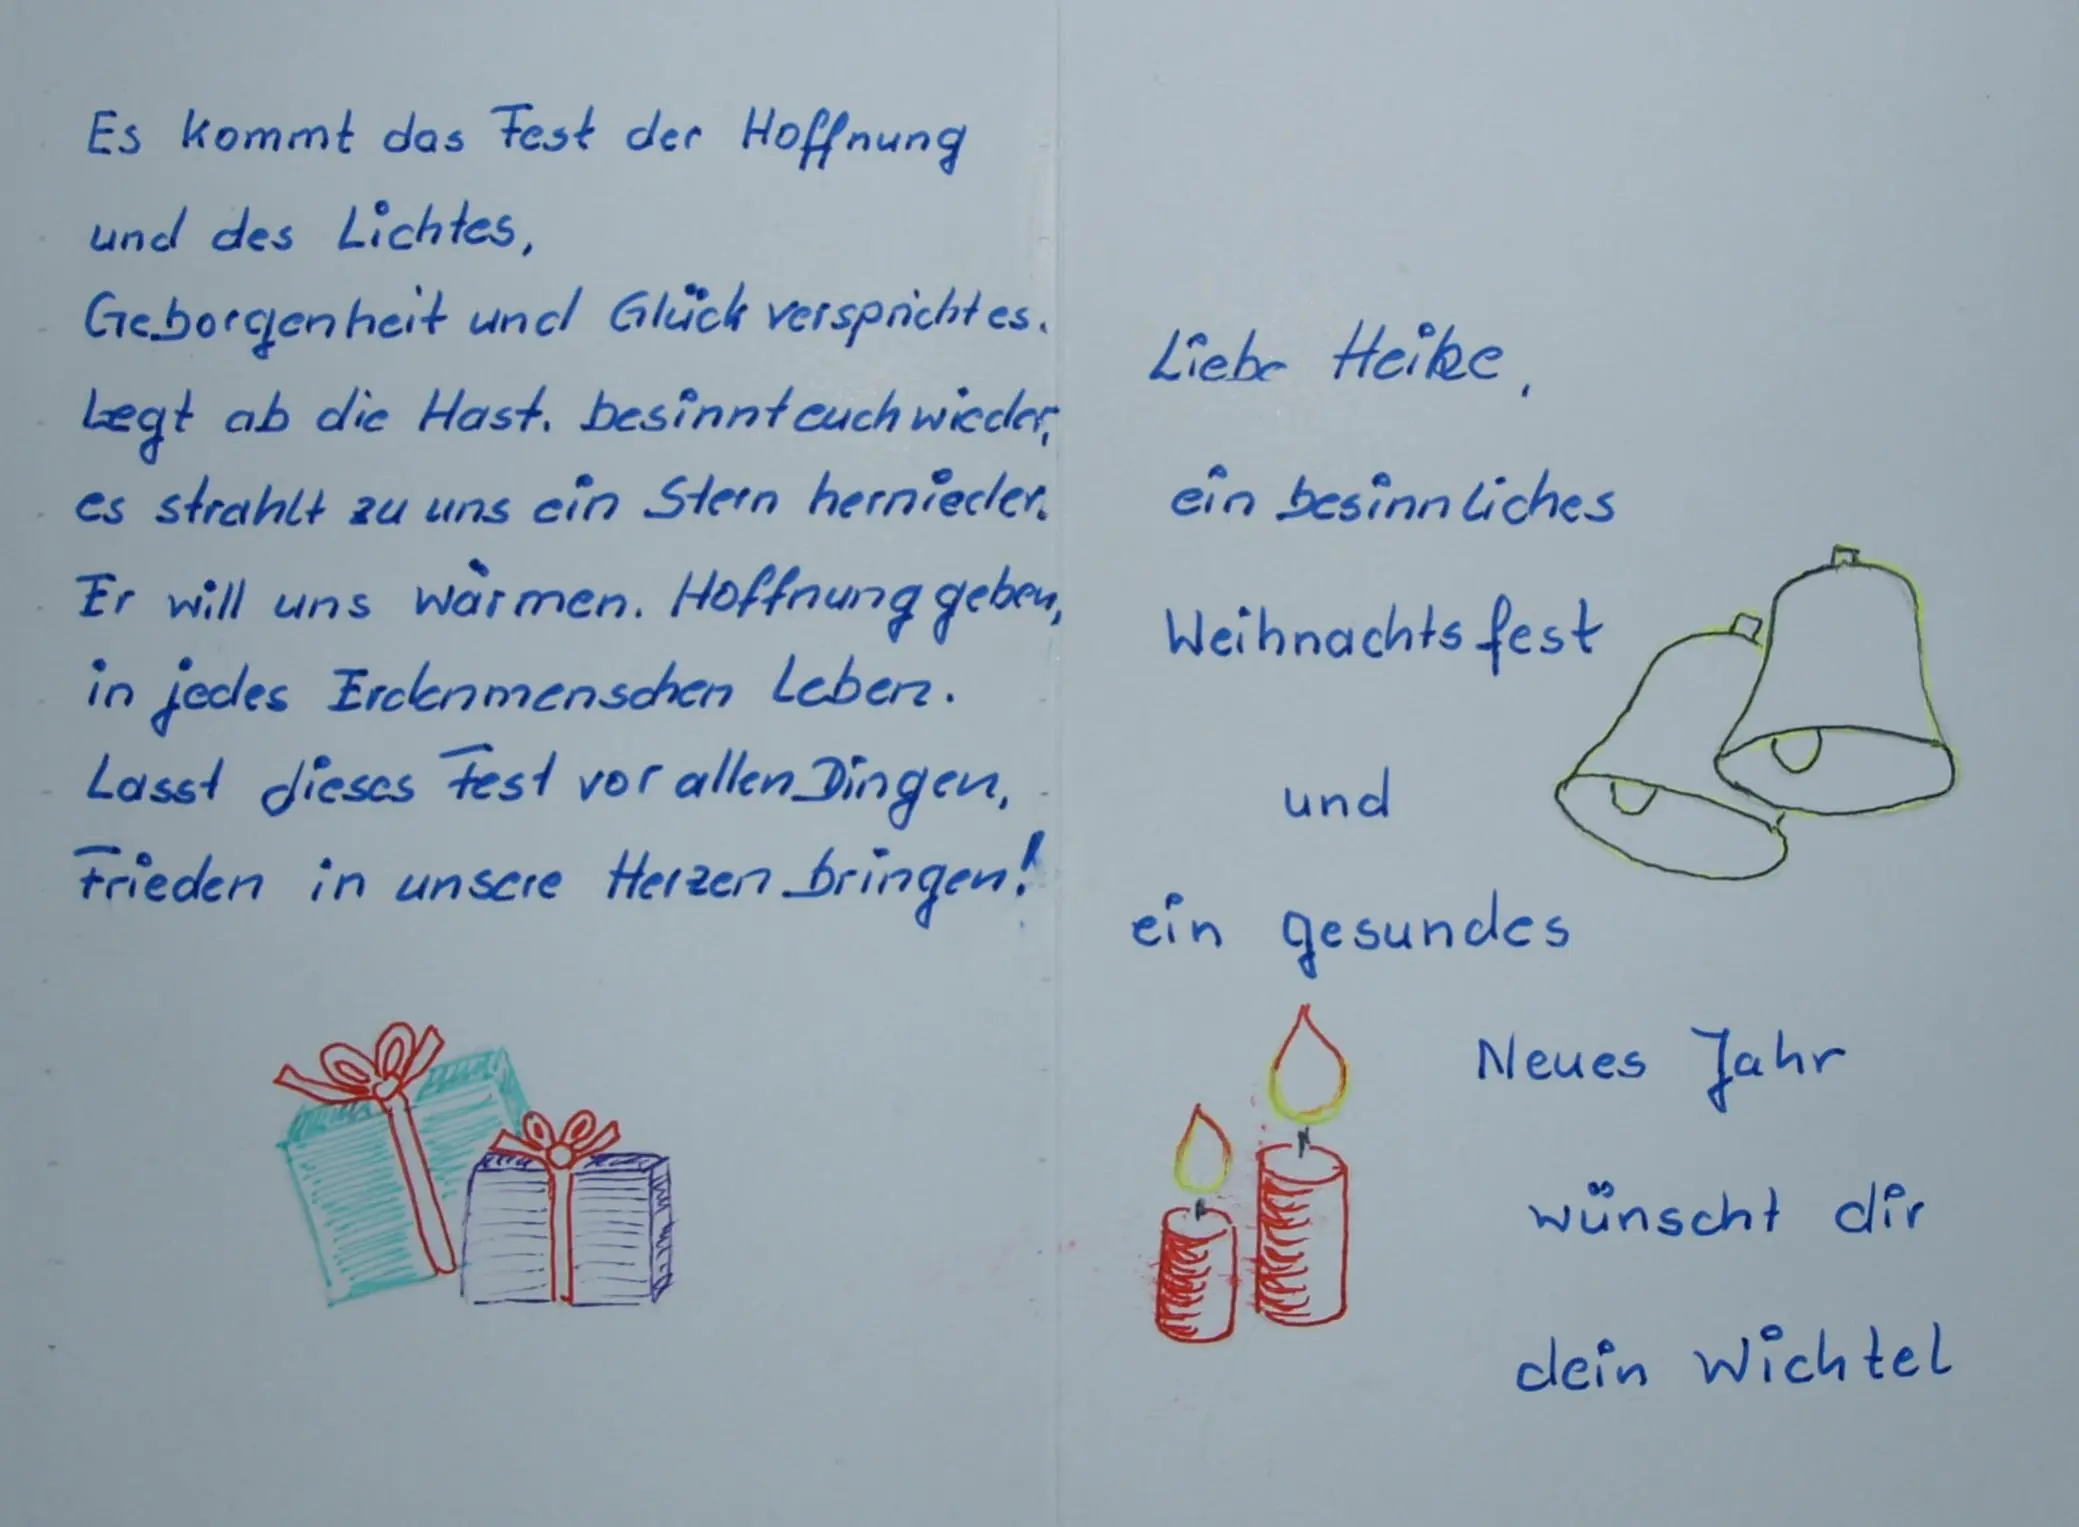 Es kommt das Fest der Hoffnung
und des Lichtes,
Geborgenheit und Glück verspricht es.
Legt ab die Hast. besinnt euch wieder,
es strahlt zu uns ein Stern hernieder.
Er will uns wärmen. Hoffnung geben,
in jedes Erdenmenschen Leben.
Lasst dieses Fest vor allen Dingen,
Frieden in unsere Herzen bringen!
Liebe Heike,
ein besinnliches
Weihnachtsfest
und
ein gesundes
Neues Jahr
wünscht dir
dein Wichtel